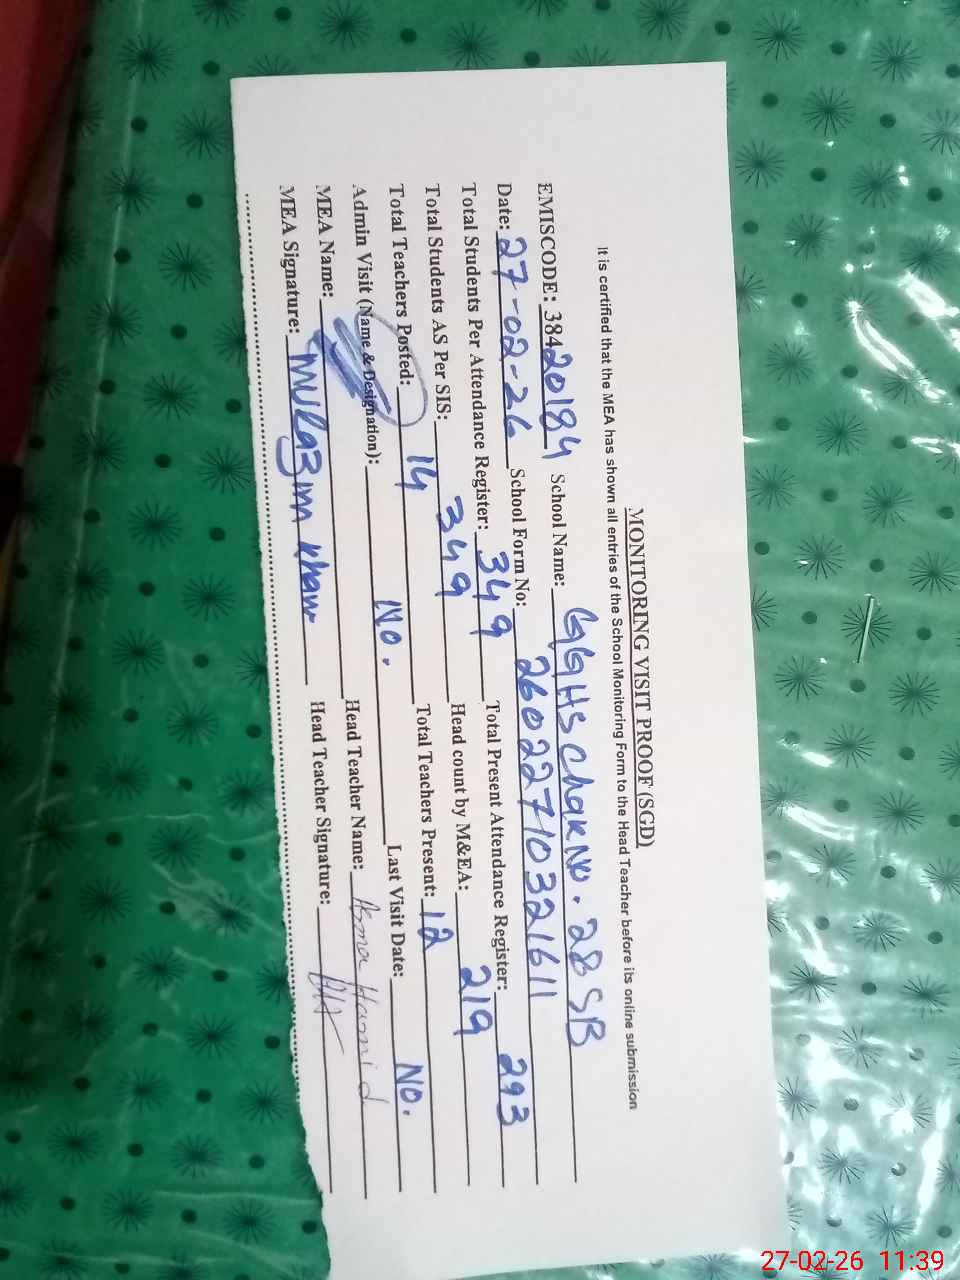 MONITORING VISIT PROOF (SGD)
It is certified that the MEA has shown all entries of the School Monitoring Form to the Head Teacher before its online submission
EMISCODE: 38420184 School Name: GGHS Chak No. 28 SB
Date: 27-02-26 School Form No: 26022710321611
Total Students Per Attendance Register: 349 Total Present Attendance Register: 293
Total Students AS Per SIS: 349 Head count by M&EA: 219
Total Teachers Posted: 14 Total Teachers Present: 12
Admin Visit (Name & Designation): No. Last Visit Date: No.
MEA Name: Head Teacher Name: Asma Hamid
MEA Signature: Head Teacher Signature:
27-02-26 11:39